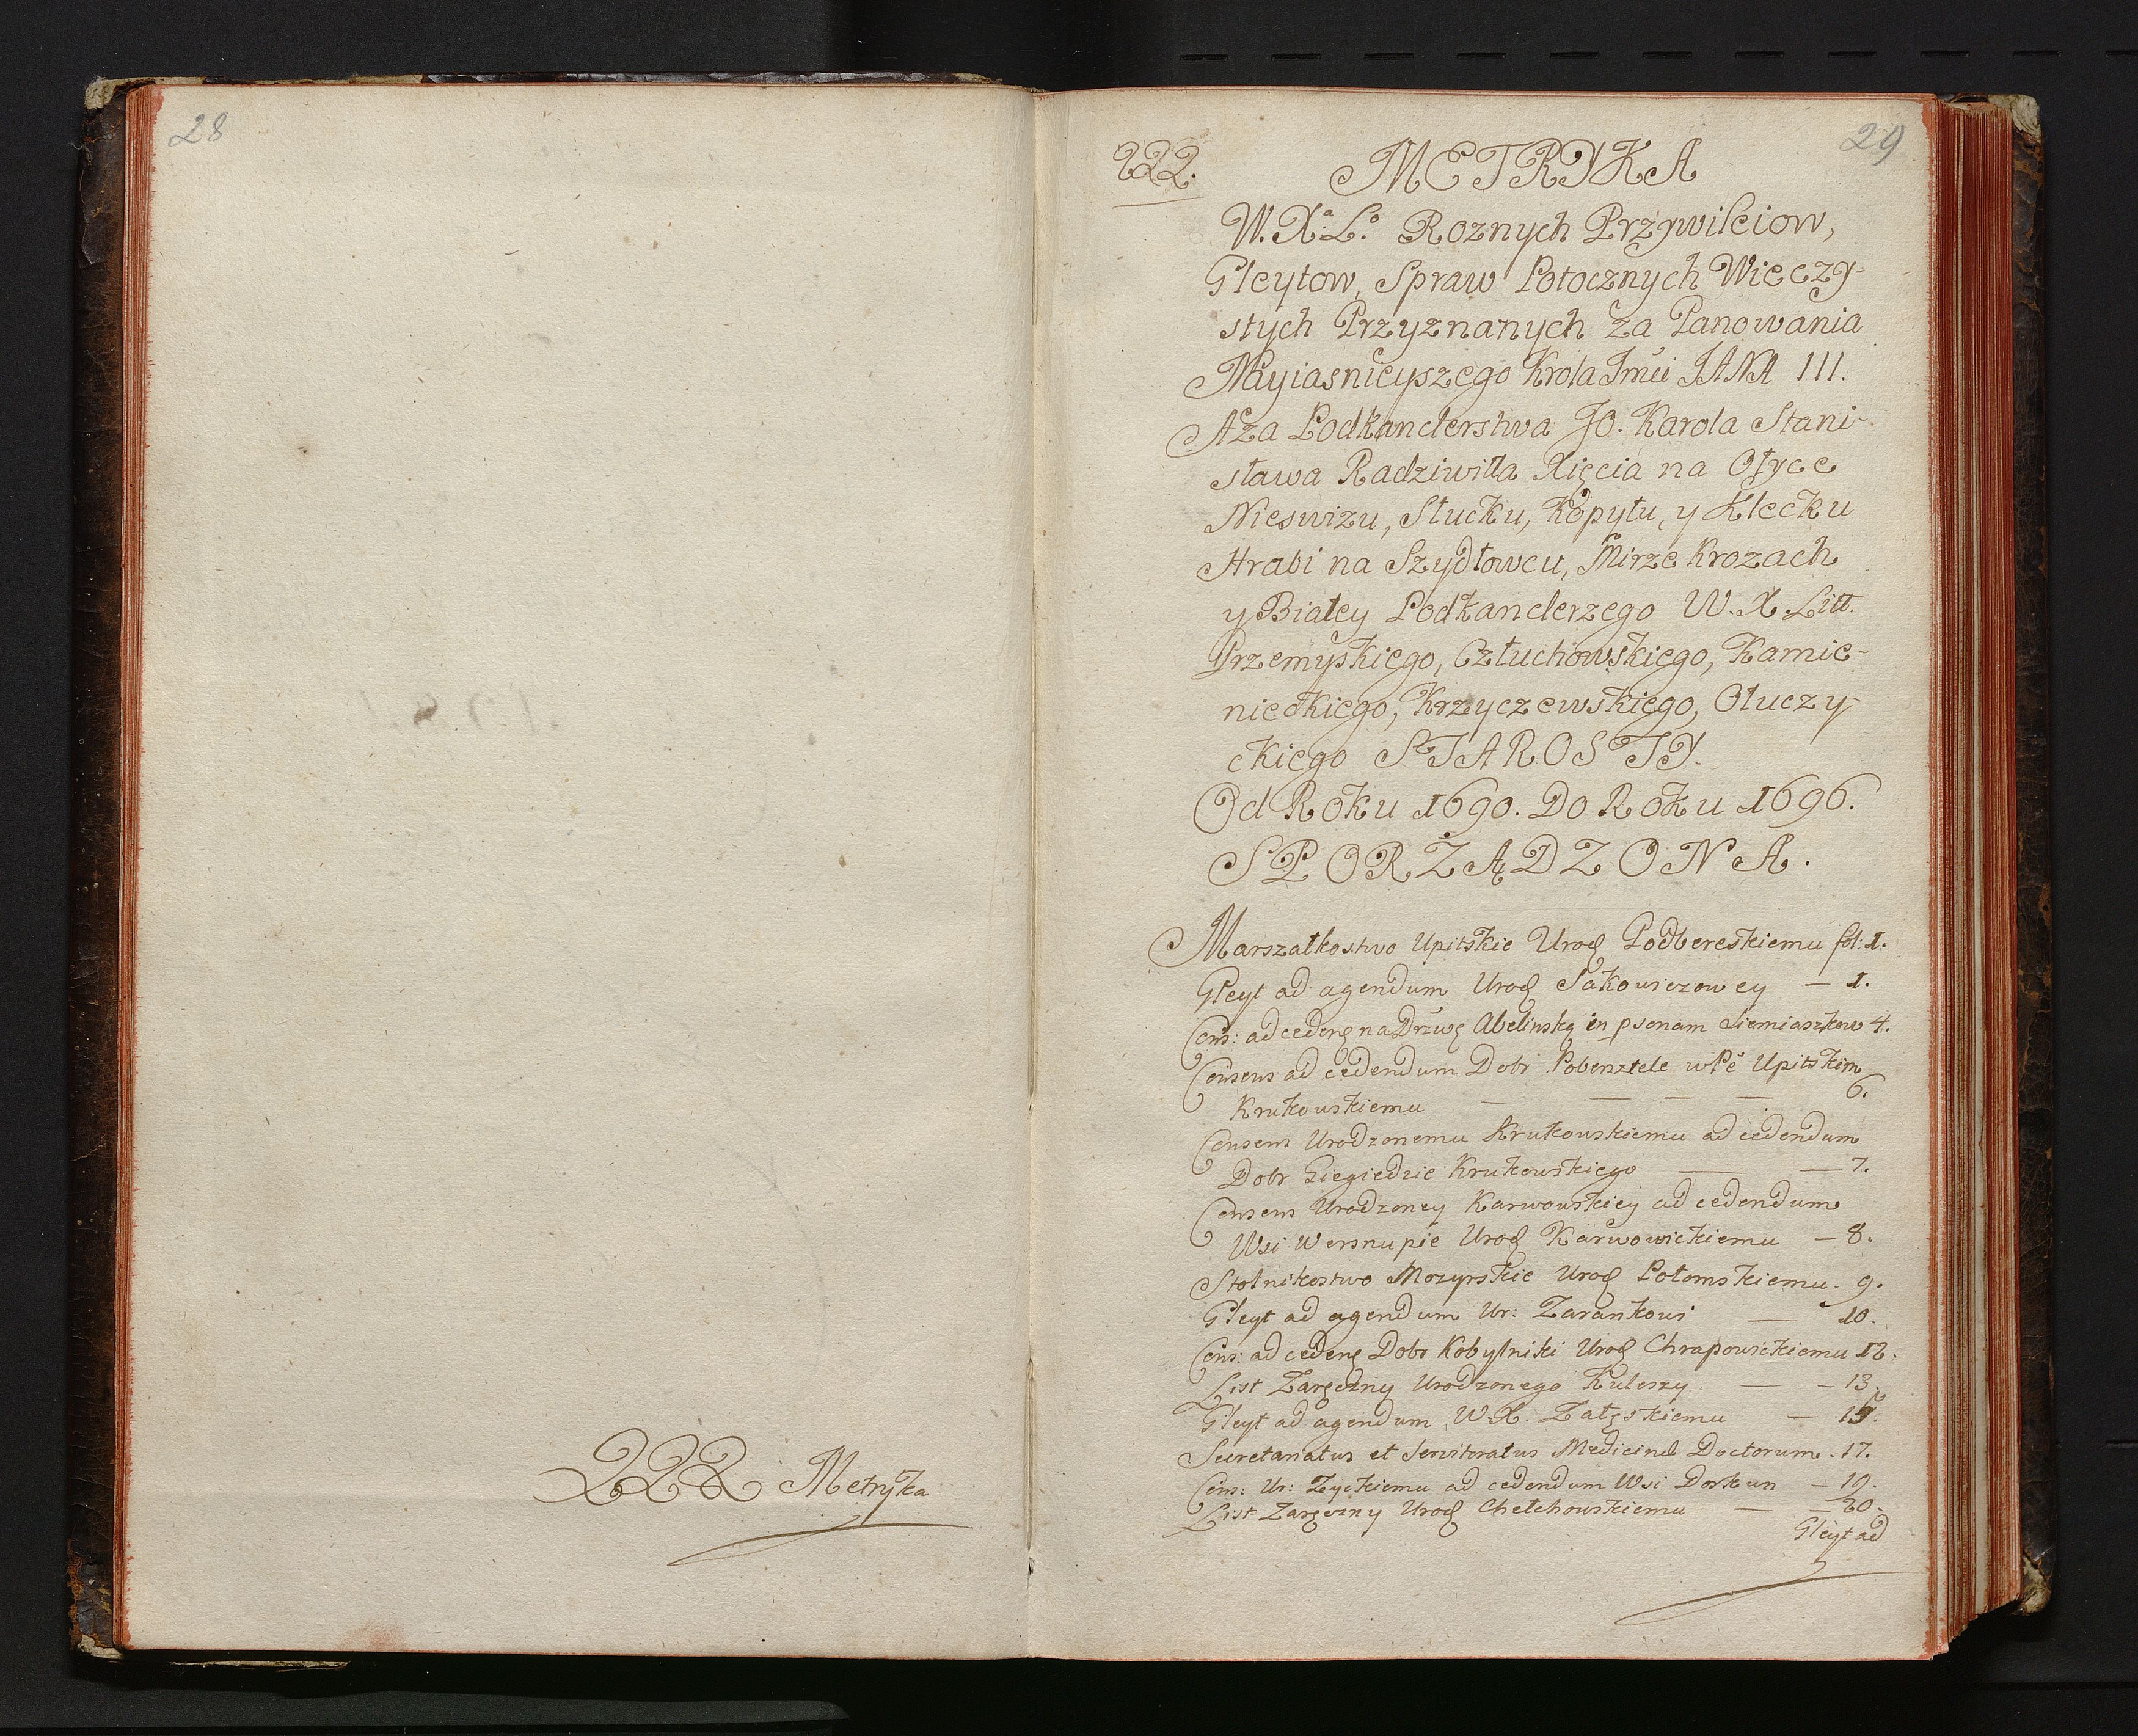 28
222 Metryka
29
222. METRYKA
W. Xa. Lo. Roznych Przywileiow,
Gleytow, Spraw Potocznych Wieczy-
stych Przyznanych za Panowania
Nayiasnieyszego Krola Jmći JANA III.
A za Podkanclerstwa JO. Karola Stani-
sława Radziwiłła Xięcia na Ołyce
Nieswizu, Słucku, Kopylu, y Klecku
Hrabi na Szydłowcu, Mirze Krozach
y Białey Podkanclerzego W. X. Litt.
Przemyskiego, Człuchowskiego, Kamie-
nieckiego, Krzyczewskiego, Ołuczy-
ckiego STAROSTY.
Od Roku 1690. Do Roku 1696.
SPORZĄDZONA.
Marszałkostwo Upitskie Urod Podbereskiemu fol: 1.
Gleyt ad agendum Urod Sakowiczowey — 1.
Cons: ad cedend na Drżwę Abelinską in psonam Siemiaszkow 4.
Consens ad cedendum Dobr w Pě Upitskim
Krukowskiemu — — — — 6.
Consens Urodzonemu Krukowskiemu ad cedendum
Dobr Giegiedzie Krukowskiego — — 7.
Consens Urodzoney Karwowskiey ad cedendum
Wsi Wersnupie Urod Karwowickiemu — 8.
Stolnikostwo Mozyrskie Urod Połomskiemu. 9.
Gleyt ad agendum Ur: Zarankowi — 10.
Cons: ad cedend Dobr Kobylniki Urod Chrapowickiemu 12.
List Zaręczny Urodzonego Kuleszy — — 13.
Gleyt ad agendum W. X. Załęskiemu — 15.
Secretariatus et Servitoratus Medicinæ Doctorum. 17.
Cons: Ur: Zyckiemu ad cedendum Wsi Dorkun — 19.
List Zaręczny Urod Chełchowskiemu — — 20.
Gleyt ad